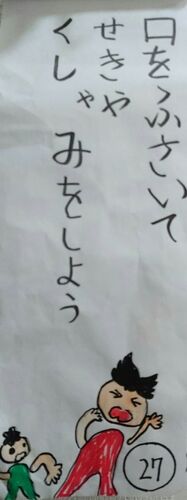 口をふさいて
せきや
くしゃみをしよう
27